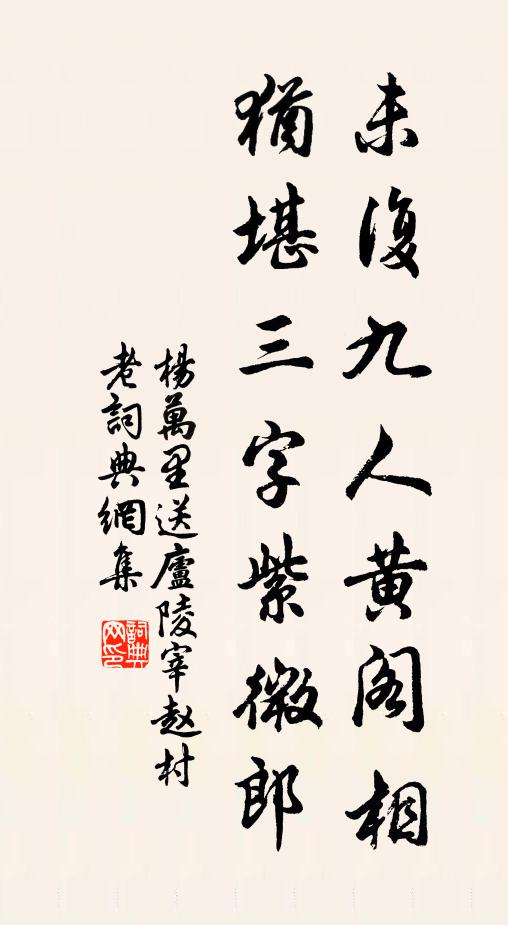 未復九人黄閣相
猶堪三字紫微郎
楊萬里送廬陵宰趙材
老詞典網集
詞典网印